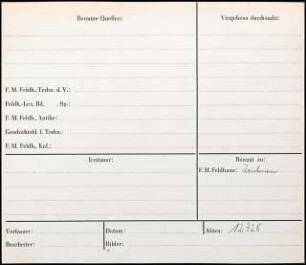 Benutzte Quellen:
Vergebens durchsucht:
F. M. Feldh., Techn. d. V.:
Feldh.-Lex. Bd. , Sp.:
F. M. Feldh., Antike:
Geschichtsbl. f. Techn.
F. M. Feldh., Kal.:
Irrtümer:
Benutzt zu:
F. M. Feldhaus:
Verfasser:
Datum:
Akten: 12328
Bearbeiter:
Bilder: